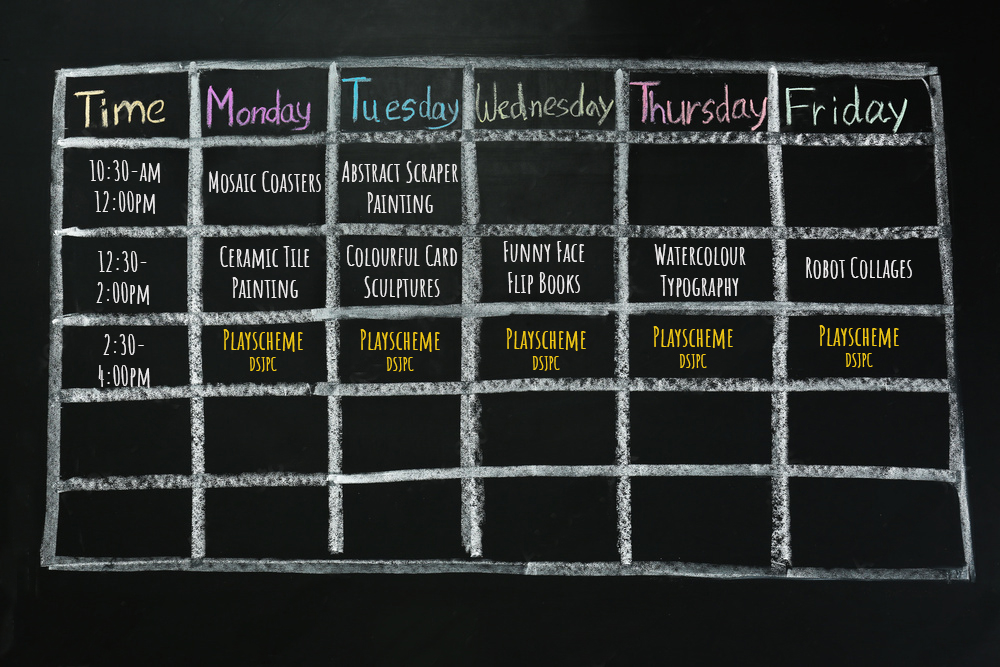 Time Monday Tuesday Wednesday Thursday Friday
10:30-am
12:00pm
Mosaic Coasters
Abstract Scraper
Painting
12:30-
2:00pm
Ceramic Tile
Painting
Colourful Card
Sculptures
Funny Face
Flip Books
Watercolour
Typography
Robot Collages
2:30-
4:00pm
Playscheme
DSJPC
Playscheme
DSJPC
Playscheme
DSJPC
Playscheme
DSJPC
Playscheme
DSJPC